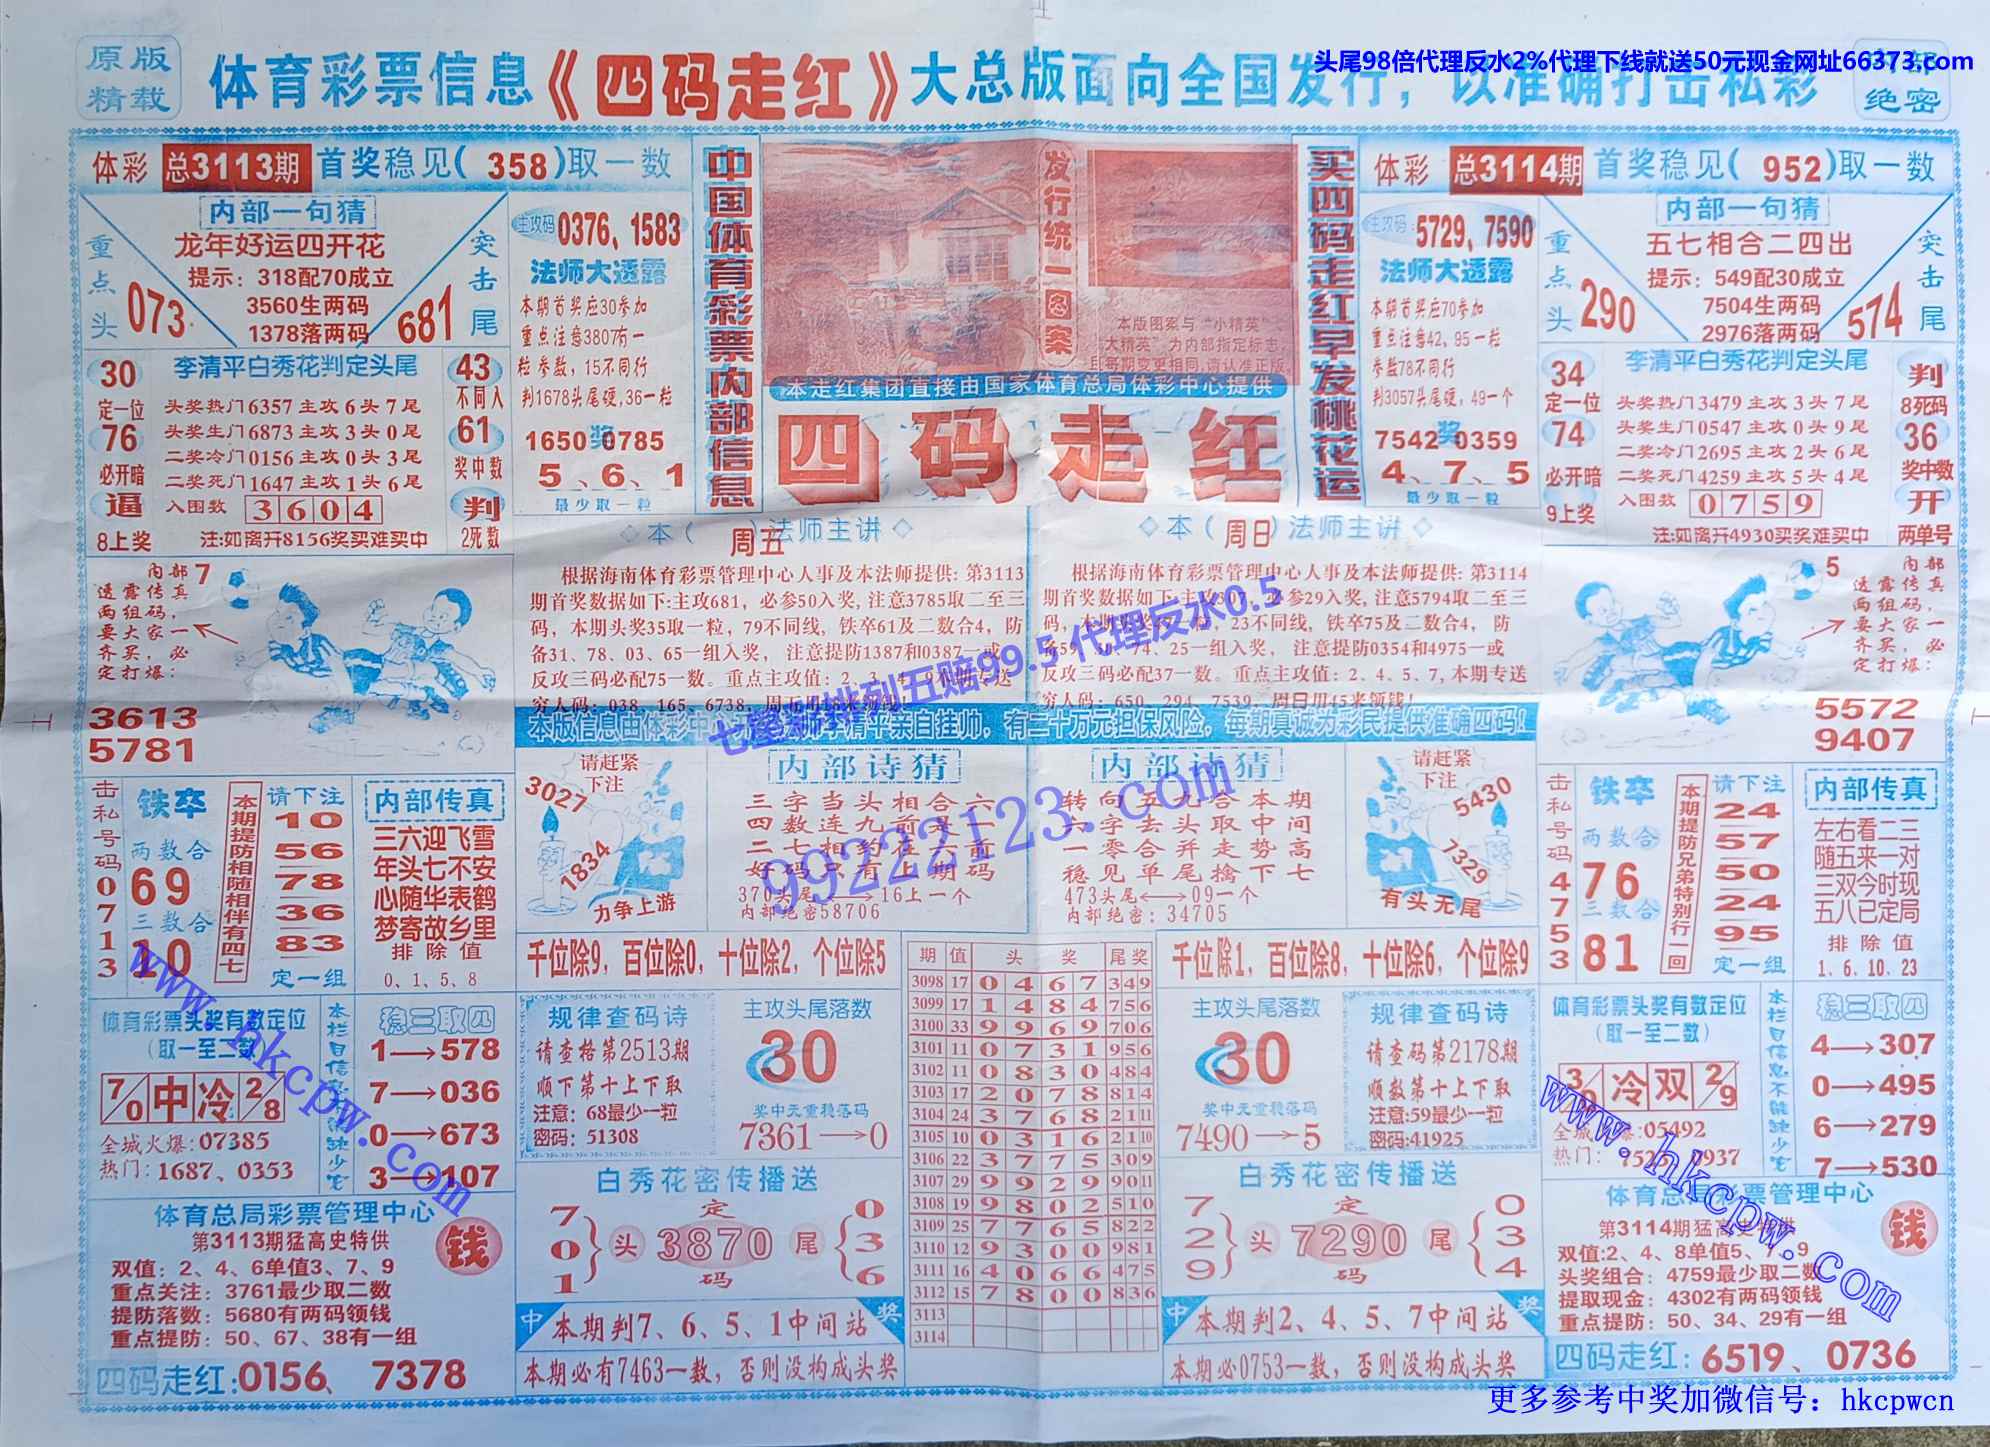 原版
精载
体育彩票信息《四码走红》大总版面向全国发行，以准确打击私彩
绝密
头尾98倍代理反水2%代理下线就送50元现金网址66373.com
体彩 总3113期 首奖稳见( 358 )取一数
内部一句猜
龙年好运四开花
提示：318配70成立
3560生两码
1378落两码
重点头
073
681
突击尾
主攻码 0376、1583
法师大透露
本期首奖应30参加
重点注意3807有一
粒参数，15不同行
判1678头尾硬,36一粒
1650奖0785
5、6、1
最少取一粒
30
定一位
76
必开暗
逼
8上奖
李清平白秀花判定头尾
头奖热门6357主攻6头7尾
头奖生门6873主攻3头0尾
二奖冷门0156主攻0头3尾
二奖死门1647主攻1头6尾
入围数 3604
注:如离开8156奖买难买中
43
不同入
61
奖中数
判
2死数
中国体育彩票内部信息
发行统一图案
本版图案与“小精英”
大精英”为内部指定标志,
且每期变更相同,请认准正版,
本走红集团直接由国家体育总局体彩中心提供
四码走红
买四码走红早发桃花运
体彩 总3114期 首奖稳见( 952 )取一数
主攻码: 5729、7590
法师大透露
本期首奖应70参加
重点注意42、95一粒
参数78不同行
判3057头尾硬，49一个
7542奖0359
4、7、5
最少取一粒
内部一句猜
五七相合二四出
提示：549配30成立
7504生两码
2976落两码
重点头
290
574
突击尾
34
定一位
74
必开暗
9上奖
李清平白秀花判定头尾
头奖热门3479主攻3头7尾
头奖生门0547主攻0头9尾
二奖冷门2695主攻2头6尾
二奖死门4259主攻5头4尾
入围数 0759
注:如离开4930买奖难买中
判
8死码
36
奖中数
开
两单号
内部
透露传真
两组码，
要大家一
齐买，必
定打爆：
7
3613
5781
本( 周五 )法师主讲
根据海南体育彩票管理中心人事及本法师提供: 第3113
期首奖数据如下:主攻681，必参50入奖, 注意3785取二至三
码，本期头奖35取一粒，79不同线, 铁卒61及二数合4，防
备31、78、03、65一组入奖， 注意提防1387和0387一或
反攻三码必配75一数。重点主攻值：2、3、4、9本期专送
穷人码：038、165、6738，周五用18来领钱
本( 周日 )法师主讲
根据海南体育彩票管理中心人事及本法师提供: 第3114
期首奖数据如下:主攻307，必参29入奖, 注意5794取二至三
23不同线, 铁卒75及二数合4，防
74、25一组入奖， 注意提防0354和4975一或
反攻三码必配37一数。重点主攻值：2、4、5、7, 本期专送
穷人码：650、294、7539，周日用45来领钱!
有二十万元担保风险，每期真诚为彩民提供准确四码！
七星彩排列五赔99.5 代理反水0.5
99222123.com
内部
透露传真
两组码，
要大家一
齐买，必
定打爆：
5
5572
9407
击私号码0713
铁卒
两数合
69
三数合
10
本期提防相随相伴有四七
请下注
10
56
78
36
83
定一组
内部传真
三六迎飞雪
年头七不安
心随华表鹤
梦寄故乡里
排除值
0、1、5、8
请赶紧
下注
3027
1834
力争上游
内部诗猜
三字当头相合六
四数连九前是一
二七相约在六前
好码只有上期码
370头尾⟷16上一个
内部绝密58706
内部诗猜
转向五九合本期
一字去头取中间
一零合并走势高
稳见单尾擒下七
473头尾⟷09一个
内部绝密：34705
请赶紧
下注
5430
7329
有头无尾
击私号码4753
铁卒
两数合
76
三数合
81
本期提防兄弟特别行一回
请下注
24
57
50
24
95
定一组
内部传真
左右看二三
随五来一对
三双今时现
五八已定局
排除值
1、6、10、23
千位除9，百位除0，十位除2，个位除5
千位除1，百位除8，十位除6，个位除9
期 值 头奖 尾奖
3098 17 0467 349
3099 17 1484 756
3100 33 9969 706
3101 11 0731 956
3102 11 0830 484
3103 17 2078 814
3104 24 3768 2111
3105 10 0316 2110
3106 22 3775 309
3107 29 9929 9011
3108 19 9802 510
3109 25 7765 822
3110 12 9300 981
3111 16 4066 475
3112 15 7800 836
3113
3114
体育彩票头奖有数定位
(取一至二数)
7/0 中 冷 2/8
全城火爆:07385
热门：1687、0353
稳三取四
1→578
7→036
0→673
3→107
规律查码诗
请查格第2513期
顺下第十上下取
注意：68最少一粒
密码：51308
主攻头尾落数
30
奖中无重稳落码
7361→0
主攻头尾落数
30
奖中无重稳落码
7490→5
规律查码诗
请查码第2178期
顺数第十上下取
注意:59最少一粒
密码:41925
体育彩票头奖有数定位
(取一至二数)
冷 双 2/9
:05492
热门：
本栏目信息不能缺少它
稳三取四
4→307
0→495
6→279
7→530
www.hkcpw.com
www.hkcpw.com
体育总局彩票管理中心
第3113期猛高史特供
钱
双值：2、4、6单值3、7、9
重点关注：3761最少取二数
提防落数：5680有两码领钱
重点提防：50、67、38有一组
四码走红:0156、7378
白秀花密传播送
701}头 定3870码 尾{036
中 本期判7、6、5、1中间站 奖
本期必有7463一数，否则没构成头奖
白秀花密传播送
729}头 定7290码 尾{034
中 本期判2、4、5、7中间站 奖
本期必0753一数，否则没构成头奖
体育总局彩票管理中心
第3114期猛高史特供
钱
双值:2、4、8单值5、7、9
头奖组合：4759最少取二数
提取现金：4302有两码领钱
重点提防：50、34、29有一组
四码走红: 6519、0736
更多参考中奖加微信号：hkcpwcn